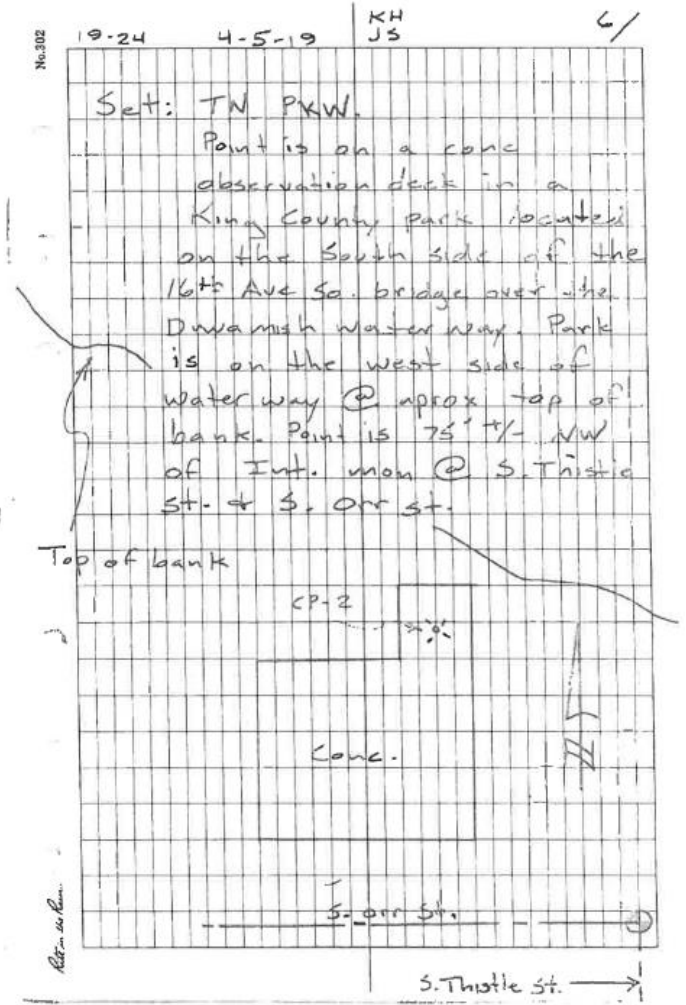 No.302
19-24 4-5-19 KH 6/
JS
Set: TN PKW.
Point is on a conc
observation deck in a
King County park located
on the South side of the
16th Ave So. bridge over the
Duwamish water way. Park
is on the west side of
water way @ aprox top of
bank. Point is 75' +/- NW
of Int. mon @ S. Thistle
St. & S. Orr St.
Top of bank
CP-2
Conc.
S. Orr St.
Rite in the Rain
S. Thistle St.